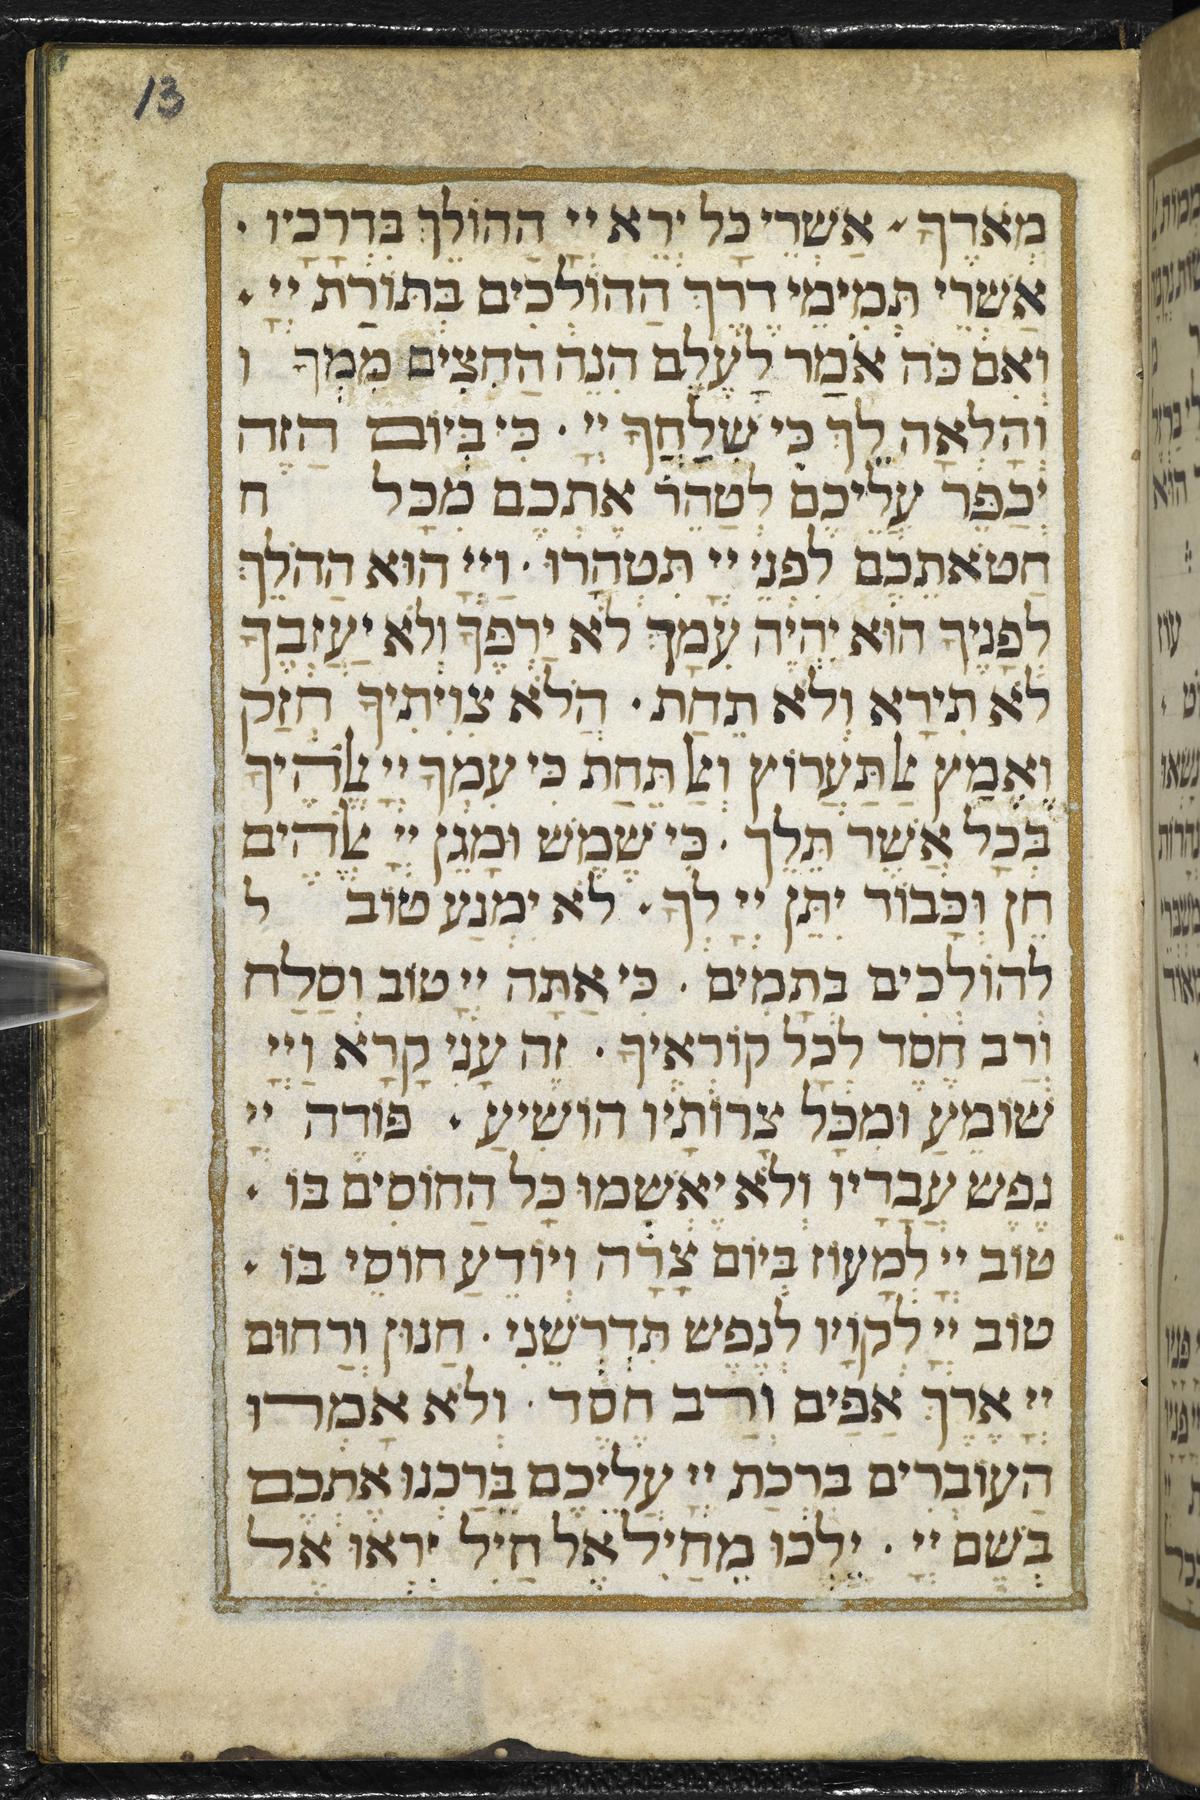 13
מְאֹדֶךָ · אַשְׁרֵי כָּל יְרֵא יְיָ הַהוֹלֵךְ בִּדְרָכָיו ·
אַשְׁרֵי תְּמִימֵי דָרֶךְ הַהוֹלְכִים בְּתוֹרַת יְיָ ·
וְאִם כֹּה אֹמַר לָעֶלֶם הִנֵּה הַחִצִּים מִמְּךָ ו
וָהָלְאָה לֵךְ כִּי שִׁלַּחֲךָ יְיָ · כִּי בַיּוֹם הַזֶּה
יְכַפֵּר עֲלֵיכֶם לְטַהֵר אֶתְכֶם מִכָּל ח
חַטֹּאתֵכֶם לִפְנֵי יְיָ תִּטְהָרוּ · וַיְיָ הוּא הַהֹלֵךְ
לְפָנֶיךָ הוּא יִהְיֶה עִמָּךְ לֹא יַרְפְּךָ וְלֹא יַעַזְבֶךָּ
לֹא תִירָא וְלֹא תֵחָת · הֲלֹא צִוִּיתִיךָ חֲזַק
וֶאֱמָץ אַל תַּעֲרוֹץ וְאַל תֵּחַת כִּי עִמְּךָ יְיָ אֱלֹהֶיךָ
בְּכָל אֲשֶׁר תֵּלֵךְ · כִּי שֶׁמֶשׁ וּמָגֵן יְיָ אֱלֹהִים
חֵן וְכָבוֹד יִתֵּן יְיָ לְךָ · לֹא יִמְנַע טוֹב ל
לַהוֹלְכִים בְּתָמִים · כִּי אַתָּה יְיָ טוֹב וְסַלָּח
וְרַב חֶסֶד לְכָל קוֹרְאֶיךָ · זֶה עָנִי קָרָא וַיְיָ
שׁוֹמֵעַ וּמִכָּל צָרוֹתָיו הוֹשִׁיעַ · פּוֹדֶה יְיָ
נֶפֶשׁ עֲבָדָיו וְלֹא יֶאְשְׁמוּ כָּל הַחוֹסִים בּוֹ ·
טוֹב יְיָ לְמָעוֹז בְּיוֹם צָרָה וְיוֹדֵעַ חוֹסֵי בוֹ ·
טוֹב יְיָ לְקוֹיו לְנֶפֶשׁ תִּדְרְשֶׁנִּי · חַנּוּן וְרַחוּם
יְיָ אֶרֶךְ אַפַּיִם וְרַב חֶסֶד · וְלֹא אָמְרוּ
הָעוֹבְרִים בִּרְכַּת יְיָ עֲלֵיכֶם בֵּרַכְנוּ אֶתְכֶם
בְּשֵׁם יְיָ · יֵלְכוּ מֵחַיִל אֶל חָיִל יֵרָאוּ אֶל